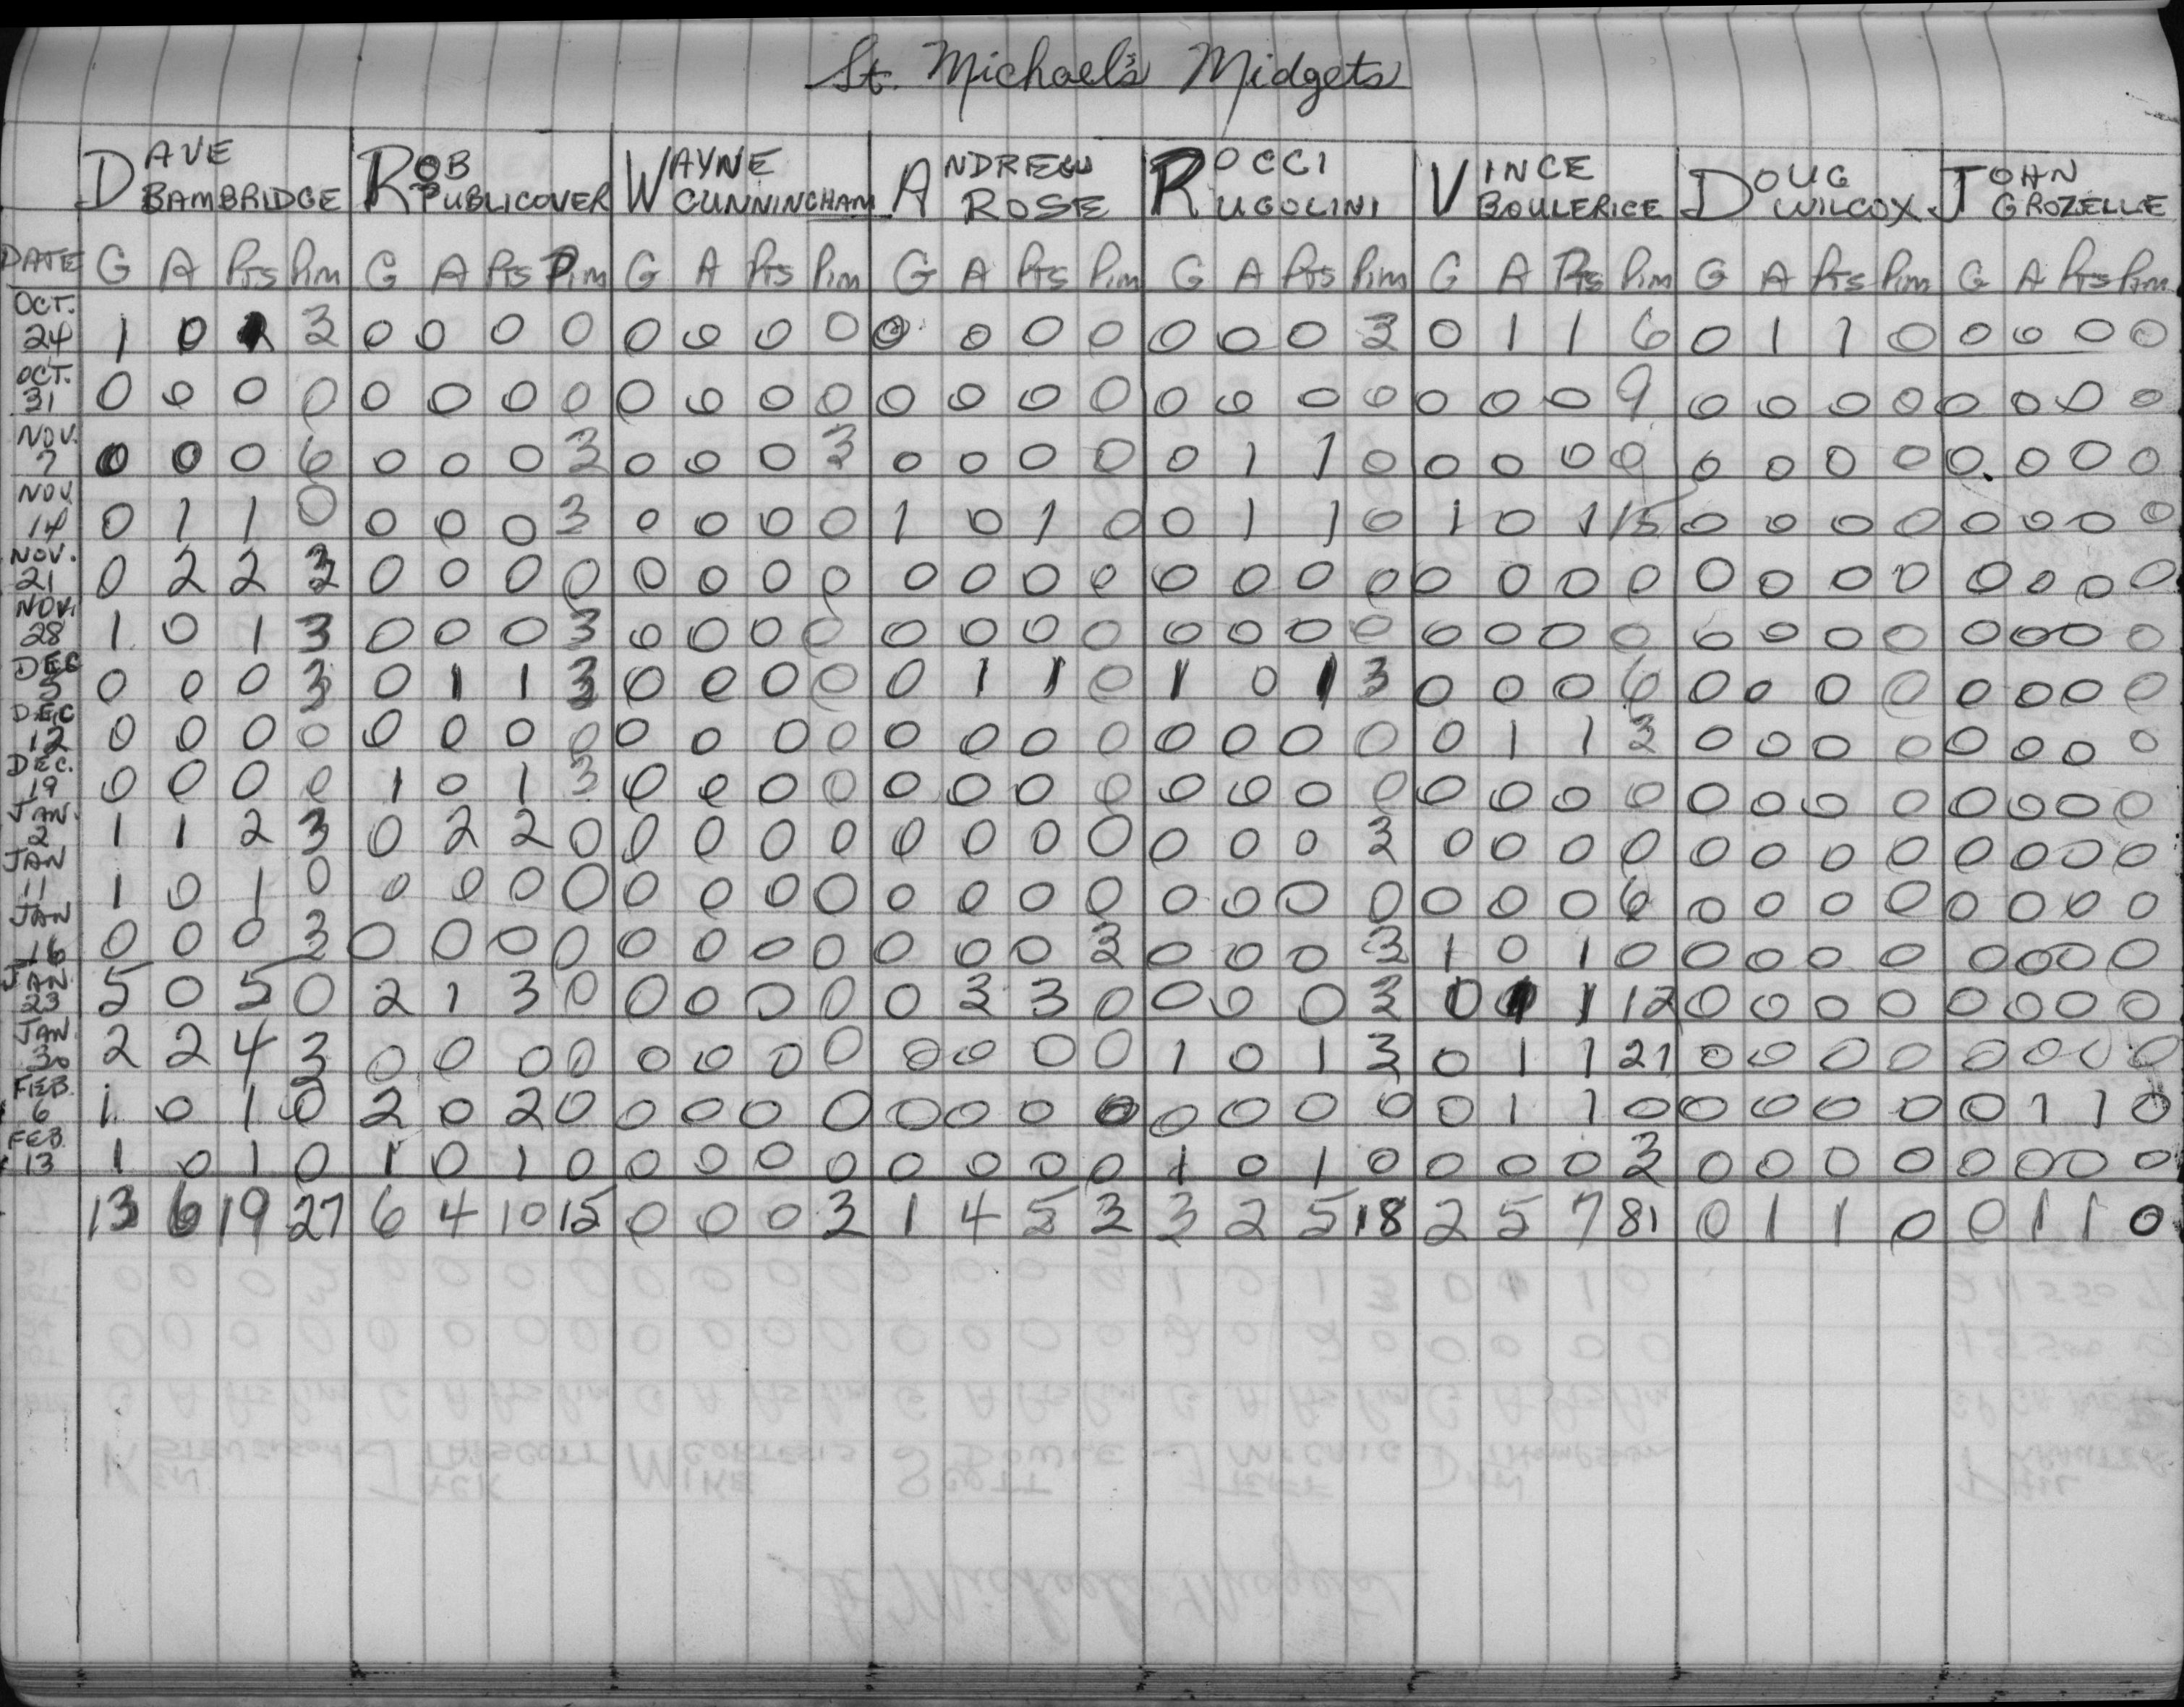 St. Michael's Midgets
DAVE BAMBRIDGE ROB PUBLICOVER WAYNE CUNNINGHAM ANDREW ROSE ROCCI RUGOLINI VINCE BOULERICE DOUG WILCOX JOHN GROZELLE
DATE G A Pts Pim G A Pts Pim G A Pts Pim G A Pts Pim G A Pts Pim G A Pts Pim G A Pts Pim G A Pts Pim
OCT. 24 1 0 1 3 0 0 0 0 0 0 0 0 0 0 0 0 0 0 0 3 0 1 1 6 0 1 1 0 0 0 0 0
OCT. 31 0 0 0 0 0 0 0 0 0 0 0 0 0 0 0 0 0 0 0 0 0 0 0 9 0 0 0 0 0 0 0 0
NOV. 7 0 0 0 6 0 0 0 3 0 0 0 3 0 0 0 0 0 1 1 0 0 0 0 0 0 0 0 0 0 0 0 0
NOV. 14 0 1 1 0 0 0 0 3 0 0 0 0 1 0 1 0 0 1 1 0 1 0 1 15 0 0 0 0 0 0 0 0
NOV. 21 0 2 2 3 0 0 0 0 0 0 0 0 0 0 0 0 0 0 0 0 0 0 0 0 0 0 0 0 0 0 0 0
NOV. 28 1 0 1 3 0 0 0 3 0 0 0 0 0 0 0 0 0 0 0 0 0 0 0 0 0 0 0 0 0 0 0 0
DEC 5 0 0 0 3 0 1 1 3 0 0 0 0 0 1 1 0 1 0 1 3 0 0 0 6 0 0 0 0 0 0 0 0
DEC 12 0 0 0 0 0 0 0 0 0 0 0 0 0 0 0 0 0 0 0 0 0 1 1 3 0 0 0 0 0 0 0 0
DEC. 19 0 0 0 0 1 0 1 3 0 0 0 0 0 0 0 0 0 0 0 0 0 0 0 0 0 0 0 0 0 0 0 0
JAN. 2 1 1 2 3 0 2 2 0 0 0 0 0 0 0 0 0 0 0 0 3 0 0 0 0 0 0 0 0 0 0 0 0
JAN 11 1 0 1 0 0 0 0 0 0 0 0 0 0 0 0 0 0 0 0 0 0 0 0 6 0 0 0 0 0 0 0 0
JAN 16 0 0 0 3 0 0 0 0 0 0 0 0 0 0 0 3 0 0 0 3 1 0 1 0 0 0 0 0 0 0 0 0
JAN. 23 5 0 5 0 2 1 3 0 0 0 0 0 0 3 3 0 0 0 0 3 0 1 1 12 0 0 0 0 0 0 0 0
JAN 30 2 2 4 3 0 0 0 0 0 0 0 0 0 0 0 0 1 0 1 3 0 1 1 21 0 0 0 0 0 0 0 0
FEB. 6 1 0 1 0 2 0 2 0 0 0 0 0 0 0 0 0 0 0 0 0 0 1 1 0 0 0 0 0 0 1 1 0
FEB. 13 1 0 1 0 1 0 1 0 0 0 0 0 0 0 0 0 1 0 1 0 0 0 0 3 0 0 0 0 0 0 0 0
13 6 19 27 6 4 10 15 0 0 0 3 1 4 5 3 3 2 5 18 2 5 7 81 0 1 1 0 0 1 1 0